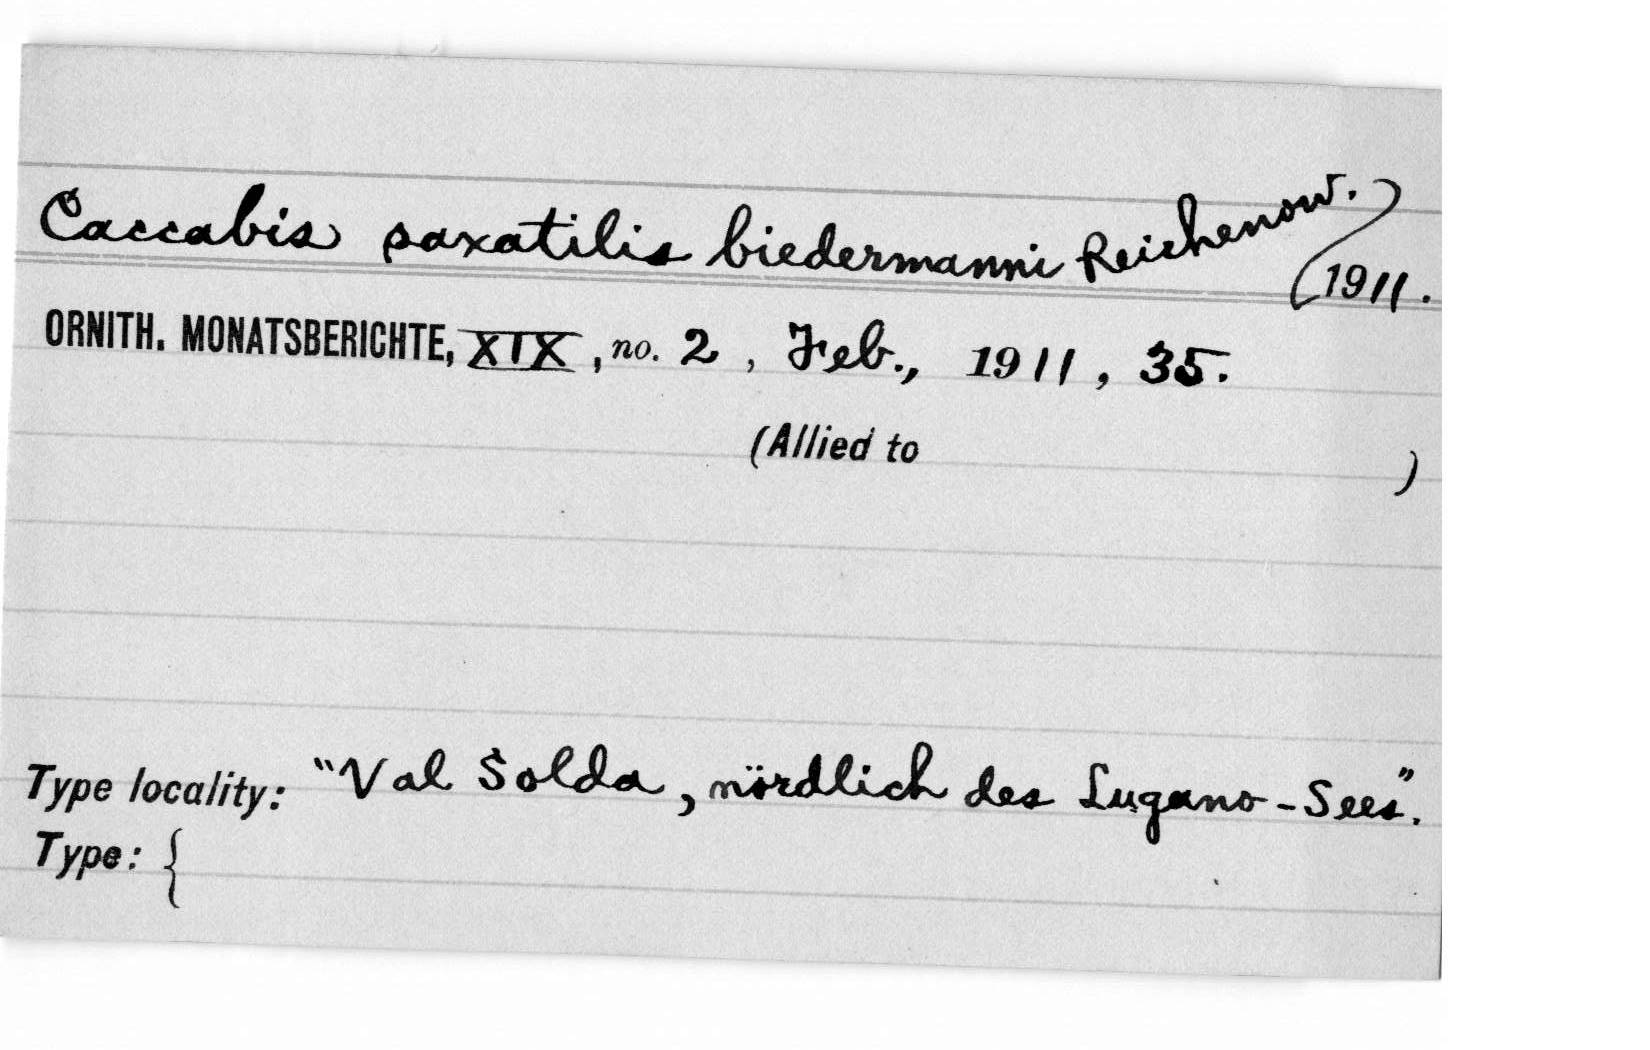 Caccabis saxatilis biedermanni Reichenow.
(1911.
ORNITH. MONATSBERICHTE, XIX, no. 2, Feb., 1911, 35.
(Allied to )
Type locality: "Val Solda, nördlich des Lugano-Sees".
Type: {